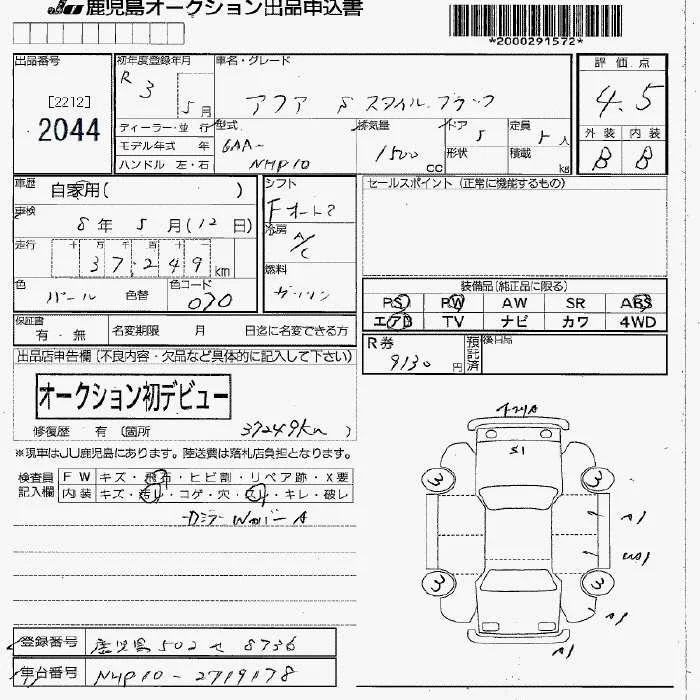 JU 鹿児島オークション出品申込書
*2000291572*
出品番号
[2212]
2044
初年度登録年月
R 3 5月
ディーラー・並 行
モデル年式 年
ハンドル 左・右
車名・グレード
アクア S スタイル ブラック
型式
6AA-
NHP10
排気量
1500 cc
ドア
5
形状
定員
5 人
積載
kg
評価点
4.5
外装 内装
B B
車歴
自家用( )
車検
8年 5月(12日)
走行
十 万 千 百 十
37249 km
色
パール
色替
色コード
070
シフト
Fオート
冷房
A/C
燃料
ガソリン
セールスポイント (正常に機能するもの)
装備品(純正品に限る)
PS PW AW SR ABS
エアB TV ナビ カワ 4WD
保証書
有・無
名変期限 月 日迄に名変できる方
R券
9130 円
預託済
後日品
出品店申告欄(不良内容・欠品など具体的に記入して下さい)
オークション初デビュー
修復歴 有 (箇所 37249km )
※現車はJU鹿児島にあります。陸送費は落札店負担となります。
検査員
記入欄
FW キズ・飛石・ヒビ割・リペア跡・X要
内装 キズ・汚レ・コゲ・穴・スレ・キレ・破レ
S1
3 3
A1
3 3
A1
A1
登録番号 鹿児島 502 せ 8736
車台番号 NHP10-2719178